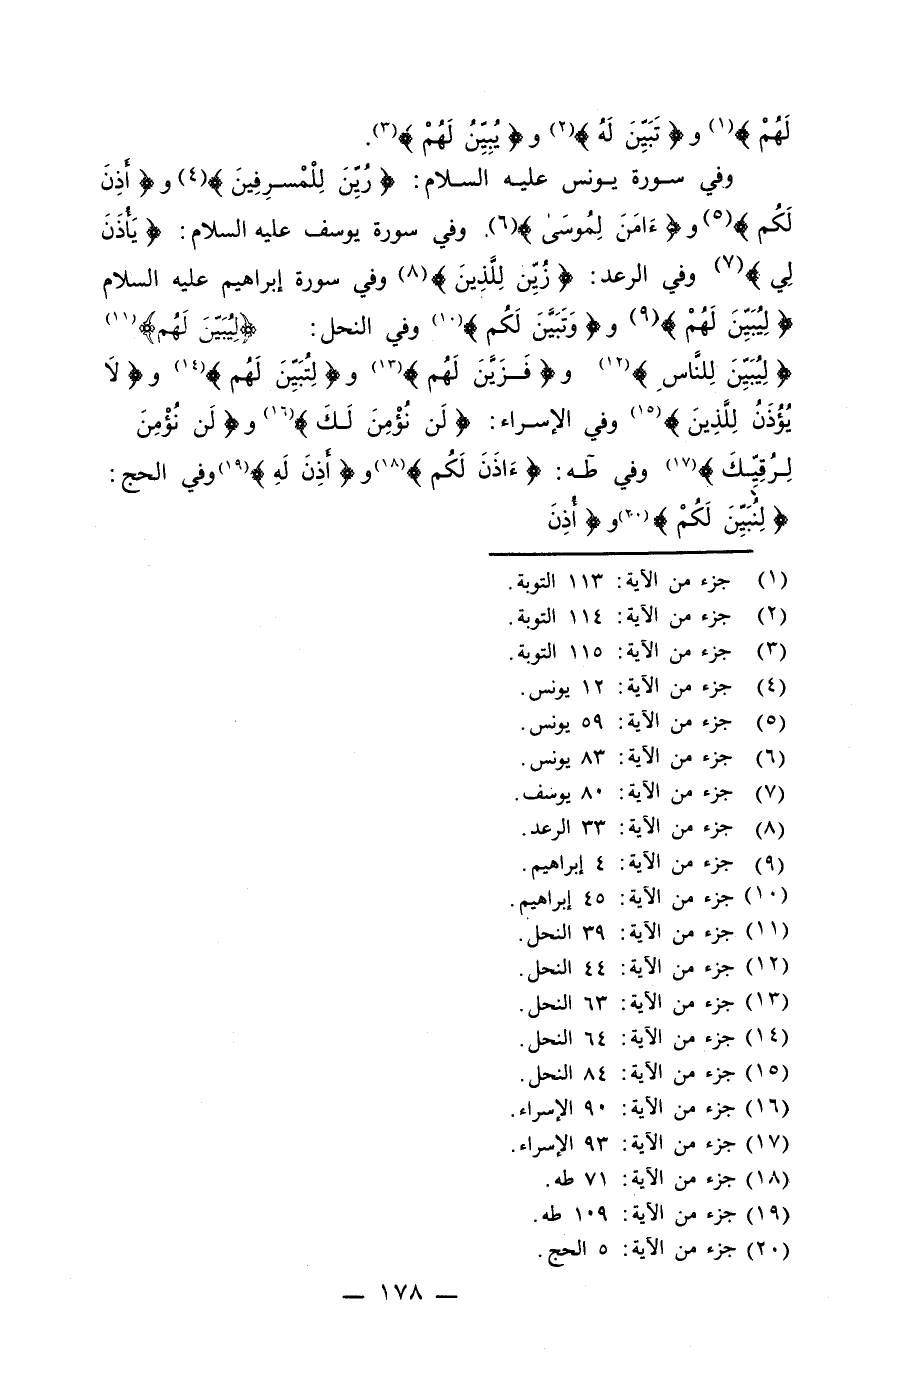 لَهُمْ ﴾(١) و ﴿ تَبَيَّنَ لَهُ ﴾(٢) و ﴿ يُبَيِّنُ لَهُمْ ﴾(٣).
وفي سورة يونس عليه السلام: ﴿ زُيِّنَ لِلْمُسرِفِينَ ﴾(٤) و ﴿ أَذِنَ
لَكُم ﴾(٥) و ﴿ ءَامَنَ لِمُوسَىٰ ﴾(٦). وفي سورة يوسف عليه السلام: ﴿ يَأْذَنَ
لِي ﴾(٧) وفي الرعد: ﴿ زُيِّنَ لِلَّذِينَ ﴾(٨) وفي سورة إبراهيم عليه السلام
﴿ لِيُبَيِّنَ لَهُمْ ﴾(٩) و ﴿ وَتَبَيَّنَ لَكُم ﴾(١٠) وفي النحل: ﴿لِيُبَيِّنَ لَهُم﴾(١١)
﴿ لِيُبَيِّنَ لِلنَّاسِ ﴾(١٢) و ﴿ فَزَيَّنَ لَهُم ﴾(١٣) و ﴿ لِتُبَيِّنَ لَهُم ﴾(١٤) و ﴿ لَا
يُؤْذَنُ لِلَّذِينَ ﴾(١٥) وفي الإسراء: ﴿ لَن نُؤْمِنَ لَكَ ﴾(١٦) و ﴿ لَن نُؤْمِنَ
لِرُقِيِّكَ ﴾(١٧) وفي طَه: ﴿ ءَاذَنَ لَكُم ﴾(١٨) و ﴿ أَذِنَ لَهِ ﴾(١٩) وفي الحج:
﴿ لِنُبَيِّنَ لَكُمْ ﴾(٢٠) و ﴿ أُذِنَ
(١) جزء من الآية: ١١٣ التوبة.
(٢) جزء من الآية: ١١٤ التوبة.
(٣) جزء من الآية: ١١٥ التوبة.
(٤) جزء من الآية: ١٢ يونس.
(٥) جزء من الآية: ٥٩ يونس.
(٦) جزء من الآية: ٨٣ يونس.
(٧) جزء من الآية: ٨٠ يوسف.
(٨) جزء من الآية: ٣٣ الرعد.
(٩) جزء من الآية: ٤ إبراهيم.
(١٠) جزء من الآية: ٤٥ إبراهيم.
(١١) جزء من الآية: ٣٩ النحل.
(١٢) جزء من الآية: ٤٤ النحل.
(١٣) جزء من الآية: ٦٣ النحل.
(١٤) جزء من الآية: ٦٤ النحل.
(١٥) جزء من الآية: ٨٤ النحل.
(١٦) جزء من الآية: ٩٠ الإسراء.
(١٧) جزء من الآية: ٩٣ الإسراء.
(١٨) جزء من الآية: ٧١ طه.
(١٩) جزء من الآية: ١٠٩ طه.
(٢٠) جزء من الآية: ٥ الحج.
— ١٧٨ —